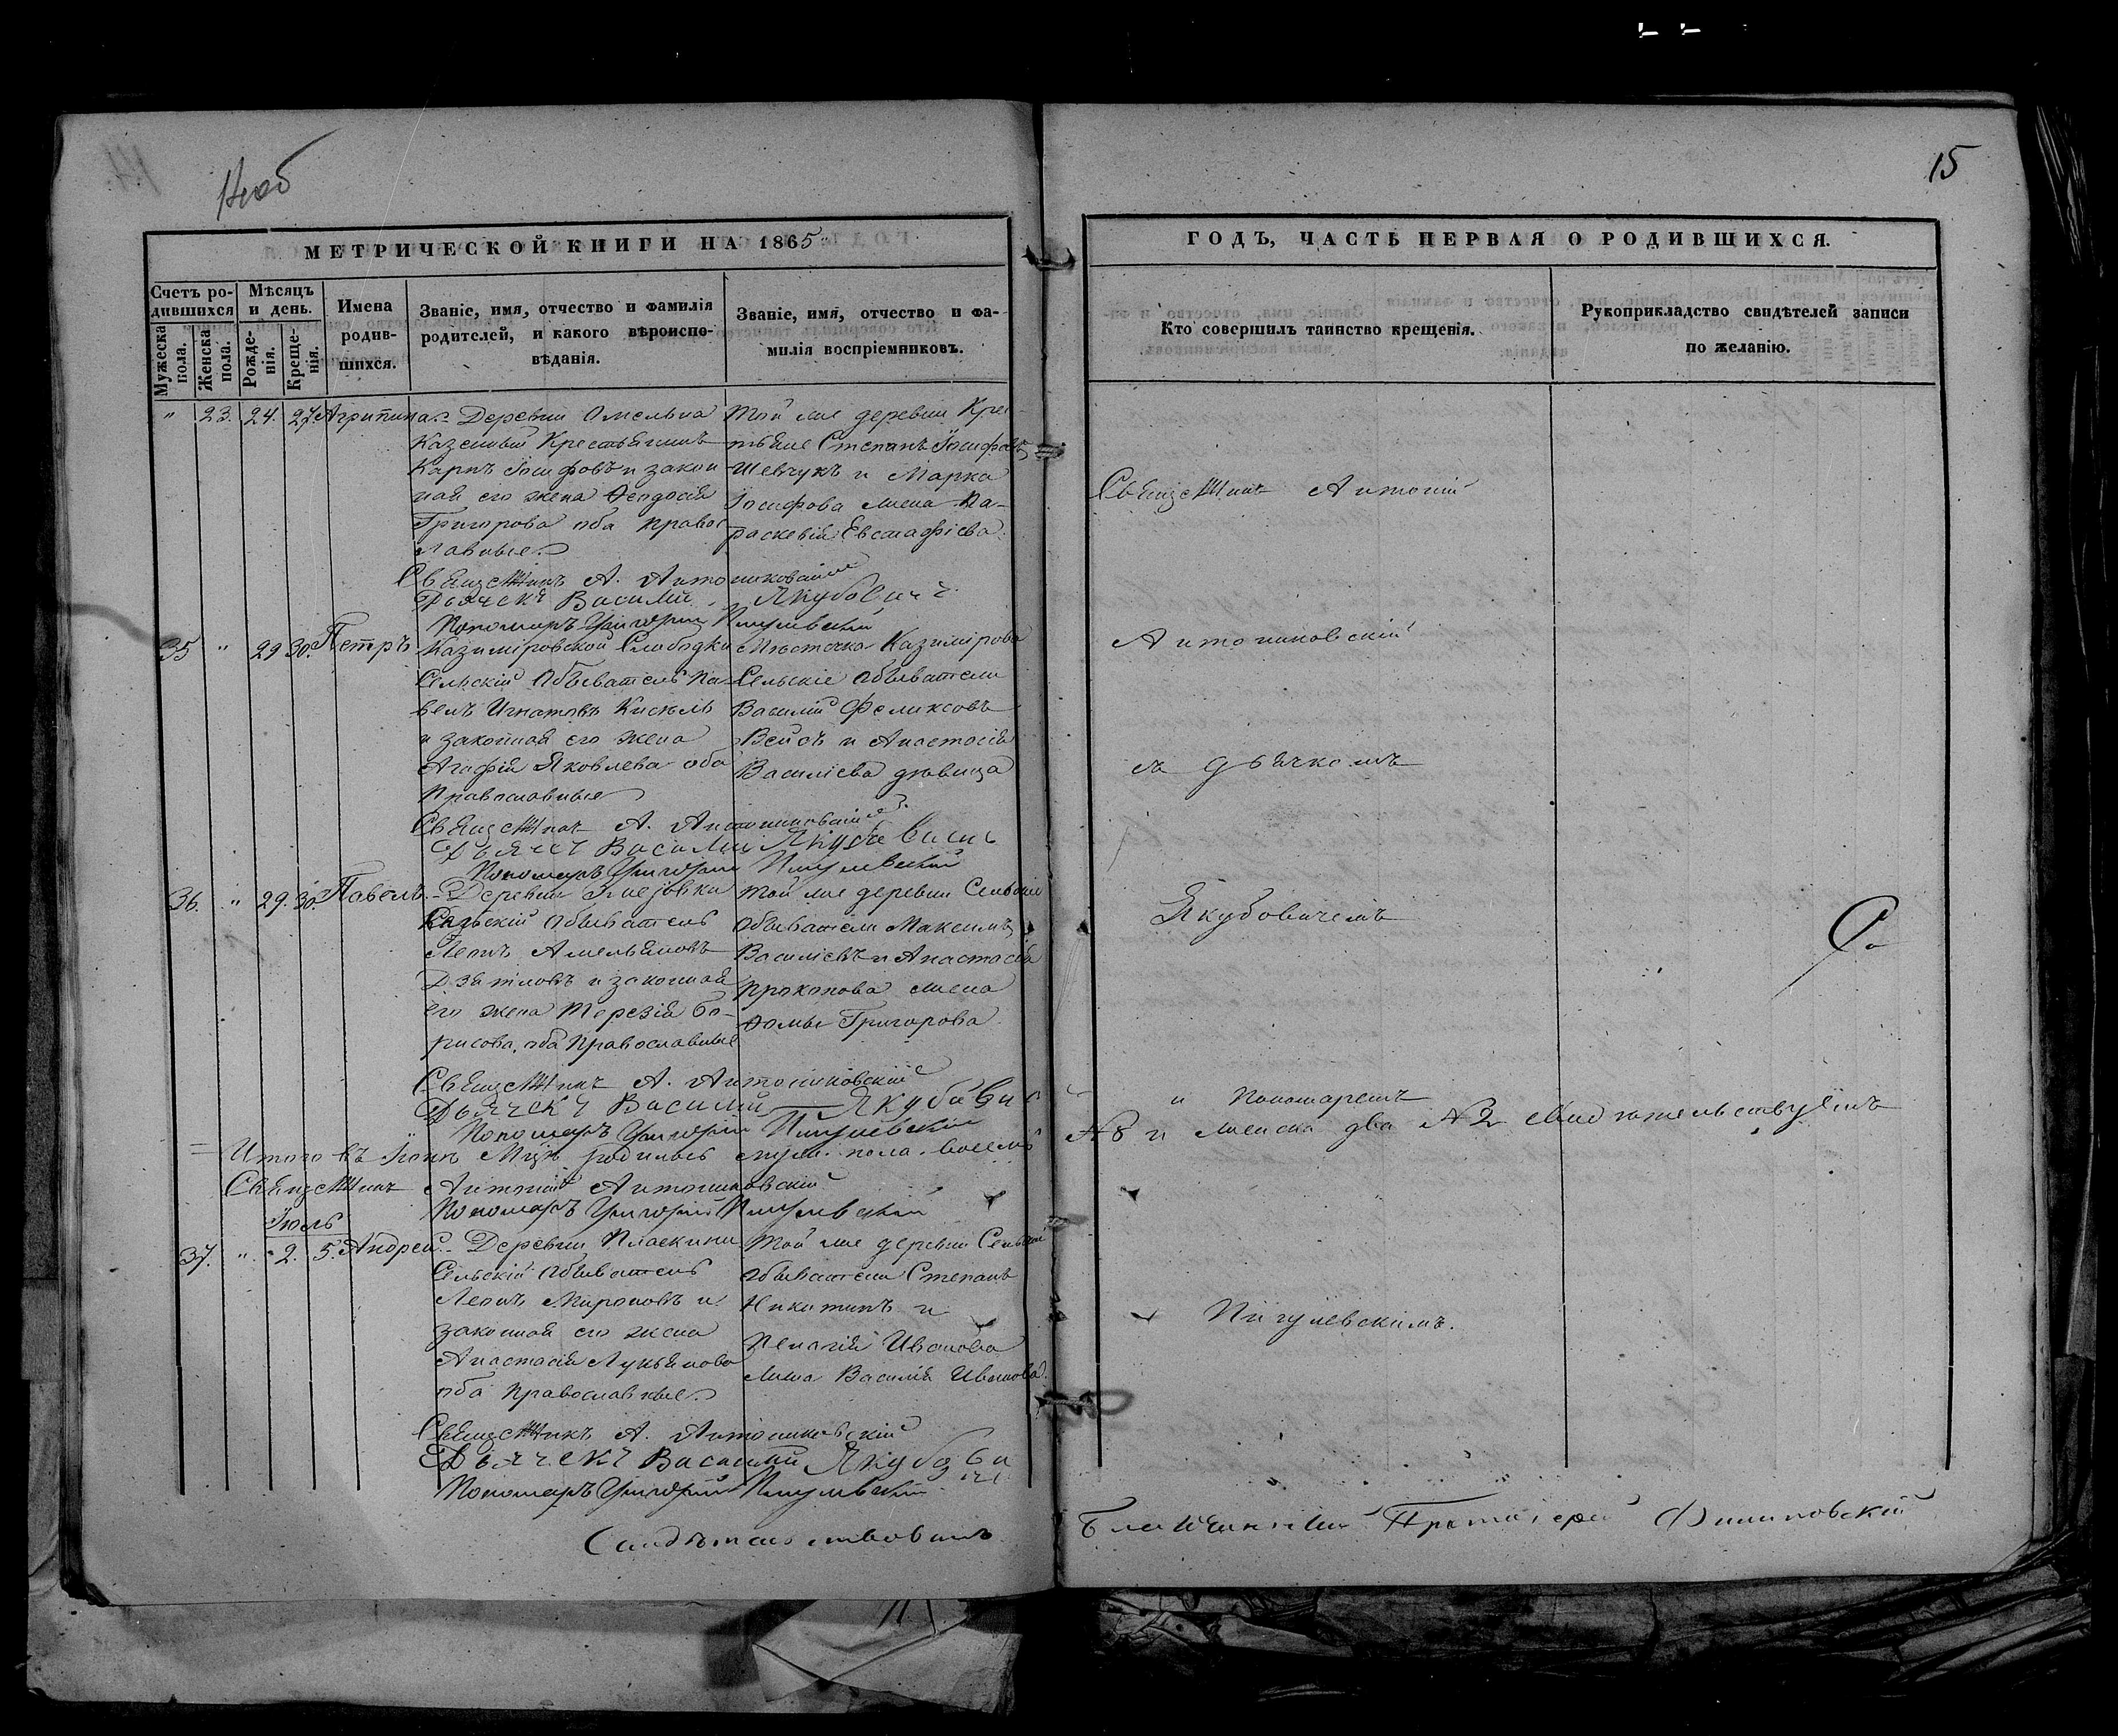 14об
15
МЕТРИЧЕСКОЙ КНИГИ НА 1865
Счетъ ро-
дившихся
Мужеска
пола.
Женска
пола.
Мѣсяцъ
и день.
Рожде-
нія.
Креще-
нія.
Имена
родив-
шихся.
Званіе, имя, отчество и фамилія
родителей, и какого вѣроиспо-
вѣданія.
Званіе, имя, отчество и фа-
милія воспріемниковъ.
" 23. 24. 27. Агрипина.
Деревни Омельна
Казенный Крестьянинъ
Карпъ Іосифовъ и закон
ная его жена Феодосія
Григорова оба правос
лавные.
Той же деревни Кре
тьяне Степанъ Іосифовъ
Шевчукъ и Марка
Іосифова жена Па-
раскевія Евстафіева.
Священникъ А. Антониковскій
Дьячекъ Василій Якубовичъ
Пономарь Григорій Пигулевскій
35 " 29 30. Петръ
Казиміровской Слободки
Сельскій Обыватель Па-
велъ Игнатовъ Кисель
и законная его жена
Агафія Яковлева оба
Православные
Мѣстечка Казимірова
Сельскіе Обыватели
Василій Феликсовъ
и Анастасія
Василіева дѣвица
Священникъ А. Антониковскій
Дьячекъ Василій Якубовичъ
Пономарь Григорій Пигулевскій
36. " 29. 30. Павелъ.
Деревни
Сельскій Обыватель
Леонъ Амельяновъ
Дзятловъ и законная
его жена Терезія Бо-
рисова, оба Православные
Той же деревни Сельскіе
Обыватели Максимъ
Василіевъ и Анастасія
Прокопова жена
Фомы Григорова
Священникъ А. Антониковскій
Дьячекъ Василій Якубовичъ
Пономарь Григорій Пигулевскій
Итого въ Іюнѣ Мцѣ родилось муж. пола восемь
Священникъ Антоній Антониковскій
Пономарь Григорій Пигулевскій
Іюль
37. " 2. 5. Андрей.
Деревни Плаекини
Сельскій Обыватель
Леонъ Мироновъ и
законная его жена
Анастасія Лукьянова
оба Православные.
Той же деревни Сельскіе
Обыватели Степанъ
Никитинъ и
Пелагія Иванова
жена Василія Иванова.
Священникъ А. Антониковскій
Дьячекъ Василій Якубовичъ
Пономарь Григорій Пигулевскій
Свидѣтельствовалъ
ГОДЪ, ЧАСТЬ ПЕРВАЯ О РОДИВШИХСЯ.
Кто совершилъ таинство крещенія.
Рукоприкладство свидѣтелей записи
по желанію.
Священникъ Антоній
Антониковскій
съ дьячкомъ
Якубовичемъ
и Пономаремъ
№ 8 и женска два № 2 свидѣтельствуемъ
Пигулевскимъ.
Благочинный Протоіерей Филиповскій